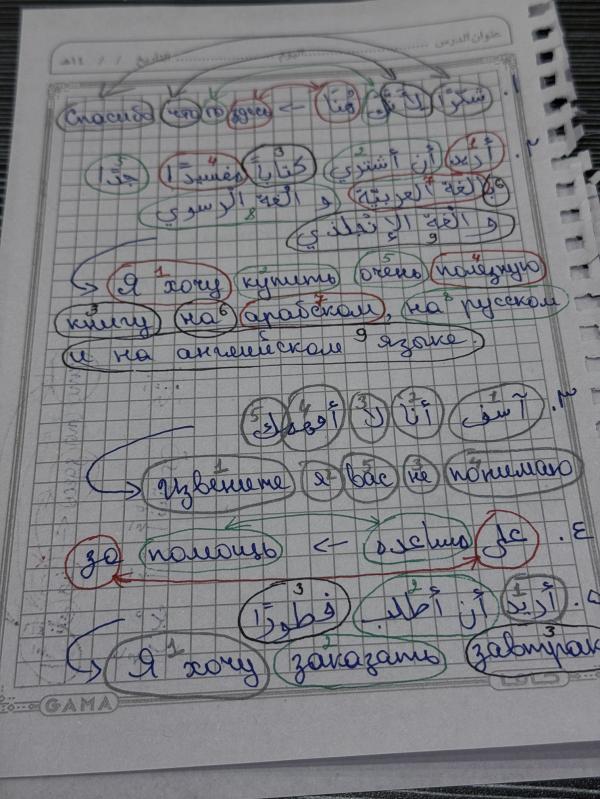 عنوان الدرس اليوم التاريخ / / ١٤هـ
١. شكرًا لأنك هنا ← Спасибо что то здесь
٢. أريد1 أن أشتري2 كتابًا3 مفيدًا4 جدًا5
ب6 الغة العربية7 و الغة الروسي8
و الغة الإنجلزي9
Я хочу1 купить2 очень5 полезную4
книгу3 на6 арабском7, на8 русском
и на английском9 языке.
٣. آسف1 أنا2 لا3 أفهم4ك5
Извените1 я2 вас5 не3 понимаю4
٤. على مساعده ← помощь за
٥. أريد1 أن أطلب2 فطورًا3
Я хочу1 заказать2 завтрак3
GAMA